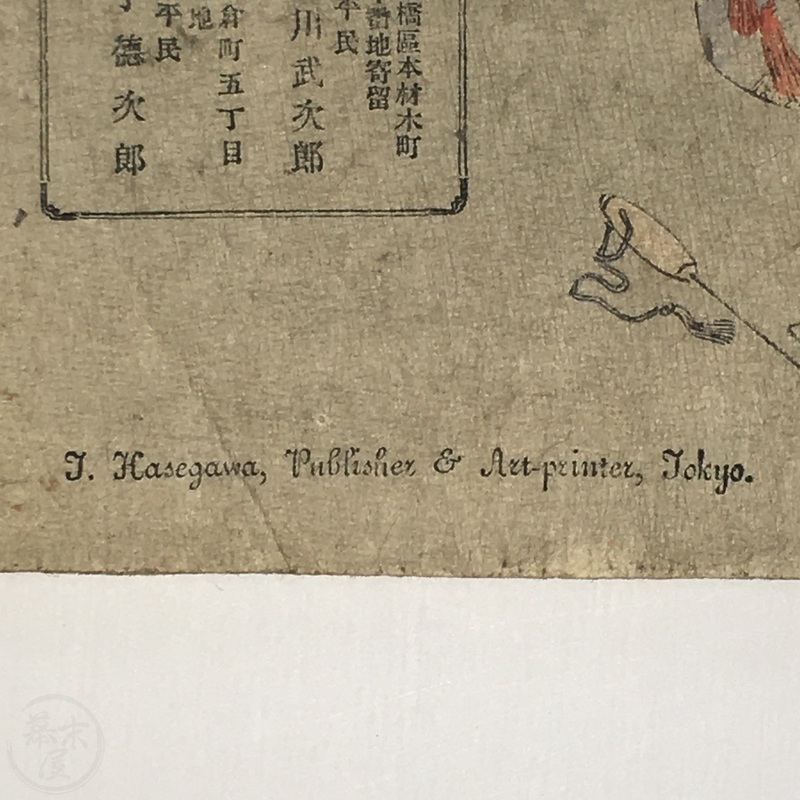 橋區本材木町
番地寄留
平民
川武次郎
倉町五丁目
地
平民
德次郎
T. Hasegawa, Publisher & Art-printer, Tokyo.
幕末屋